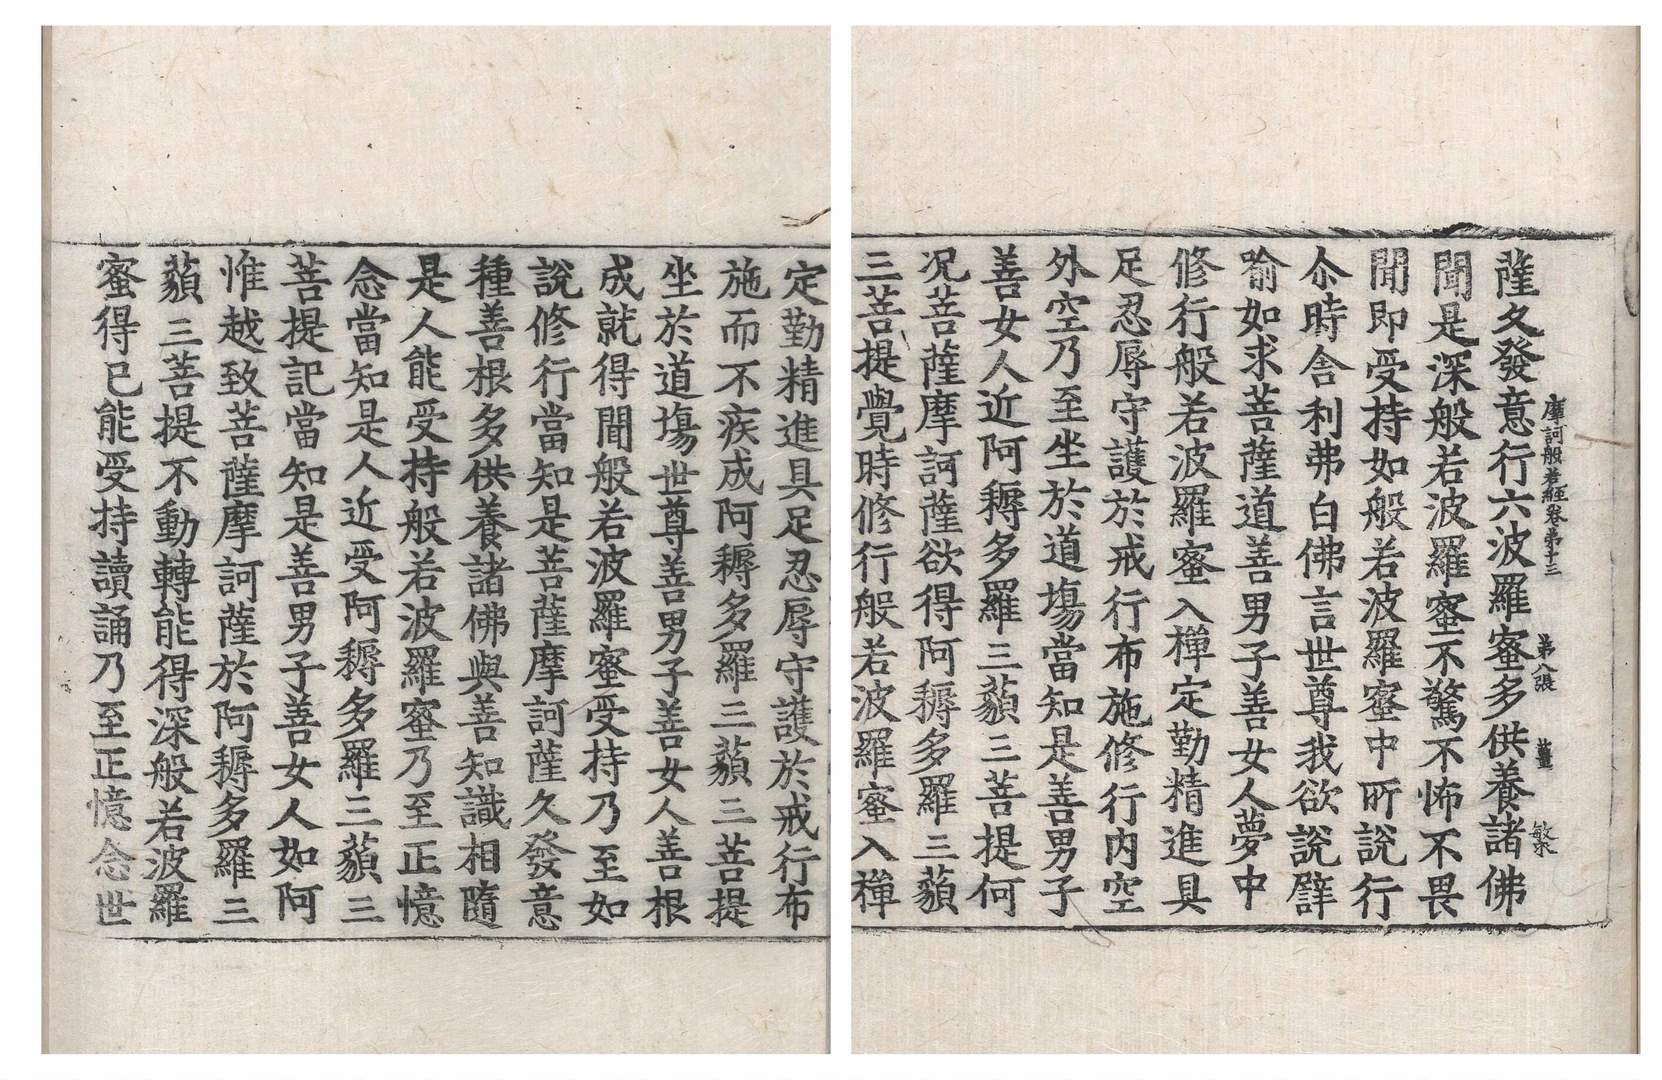 摩訶般若經卷第十三　第八張　董　敏求
薩久發意行六波羅蜜多供養諸佛
聞是深般若波羅蜜不驚不怖不畏
聞即受持如般若波羅蜜中所說行
尒時舍利弗白佛言世尊我欲說譬
喻如求菩薩道善男子善女人夢中
修行般若波羅蜜入禪定勤精進具
足忍辱守護於戒行布施修行內空
外空乃至坐於道塲當知是善男子
善女人近阿耨多羅三藐三菩提何
况菩薩摩訶薩欲得阿耨多羅三藐
三菩提覺時修行般若波羅蜜入禪
定勤精進具足忍辱守護於戒行布
施而不疾成阿耨多羅三藐三菩提
坐於道塲世尊善男子善女人善根
成就得聞般若波羅蜜受持乃至如
說修行當知是菩薩摩訶薩久發意
種善根多供養諸佛與善知識相隨
是人能受持般若波羅蜜乃至正憶
念當知是人近受阿耨多羅三藐三
菩提記當知是善男子善女人如阿
惟越致菩薩摩訶薩於阿耨多羅三
藐三菩提不動轉能得深般若波羅
蜜得已能受持讀誦乃至正憶念世